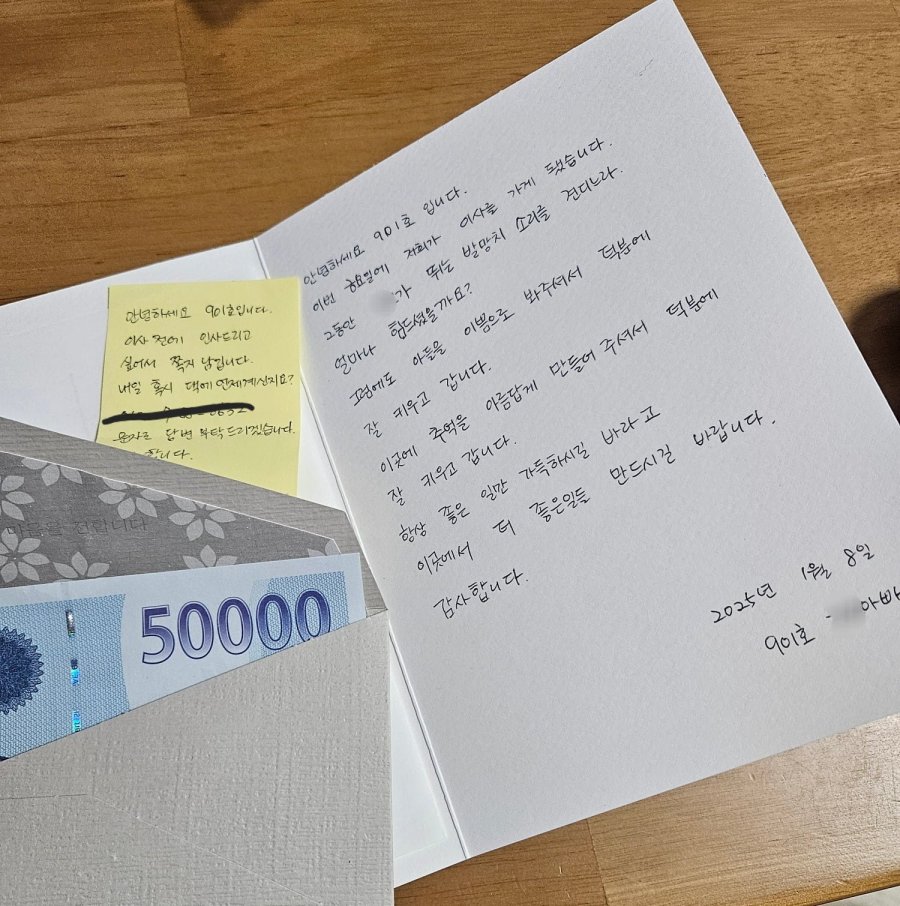 안녕하세요 901호 입니다.
이번 금요일에 저희가 이사를 가게 됐습니다.
그동안 가 뛰는 발망치 소리를 견디느라
얼마나 힘드셨을까요?
그럼에도 아들을 이쁨으로 봐주셔서 덕분에
잘 키우고 갑니다.
이곳에 추억을 아름답게 만들어 주셔서 덕분에
잘 키우고 갑니다.
항상 좋은 일만 가득하시길 바라고
이곳에서 더 좋은일들 만드시길 바랍니다.
감사합니다.
2025년 1월 8일
901호 아빠
안녕하세요 901호입니다.
이사 전에 인사드리고
싶어서 쪽지 남깁니다.
내일 혹시 댁에 언제계신지요?
문자로 답변 부탁드리겠습니다.
합니다.
마음을 전합니다
50000